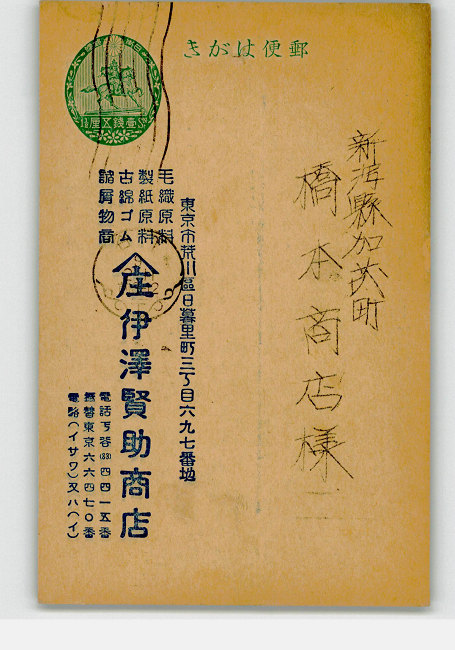 郵便はがき
壹錢五厘
新潟縣加茂町
橋本商店様
東京市荒川區日暮里町三丁目六九七番地
毛織原料
製紙原料
古綿ゴム
諸屑物商
庄
伊澤賢助商店
電話下谷(83)四四一五番
振替東京六六四七〇番
電略(イサワ)又ハ(イ)